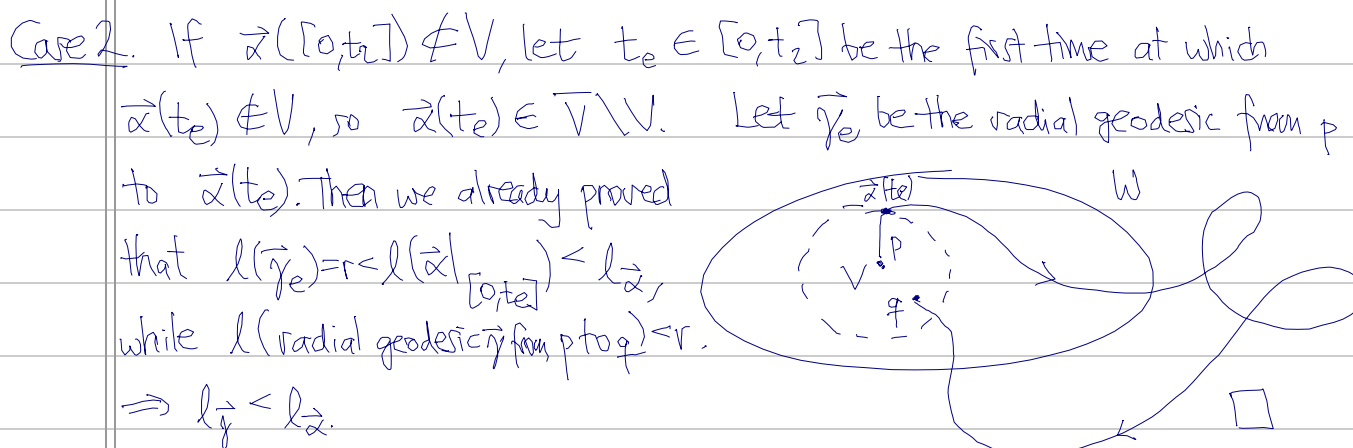 Case 2. If $\vec{\alpha}([0,t_2]) \not\subset V$, let $t_e \in [0,t_2]$ be the first time at which
$\vec{\alpha}(t_e) \notin V$, so $\vec{\alpha}(t_e) \in \overline{V} \setminus V$. Let $\vec{\gamma}_e$ be the radial geodesic from p
to $\vec{\alpha}(t_e)$. Then we already proved
that $l(\vec{\gamma}_e) = r < l(\vec{\alpha}|_{[0,t_e]}) < l_{\vec{\alpha}}$,
while $l$(radial geodesic $\vec{\gamma}$ from p to q) < r.
$\Rightarrow l_{\vec{\gamma}} < l_{\vec{\alpha}}$.
$\vec{\alpha}(t_e)$
W
p
V
q
□